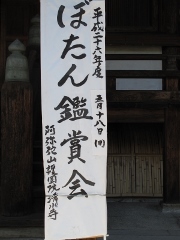 平成二十六年度
五月十八日(日)
ぼたん鑑賞会
阿弥陀山 院 寺